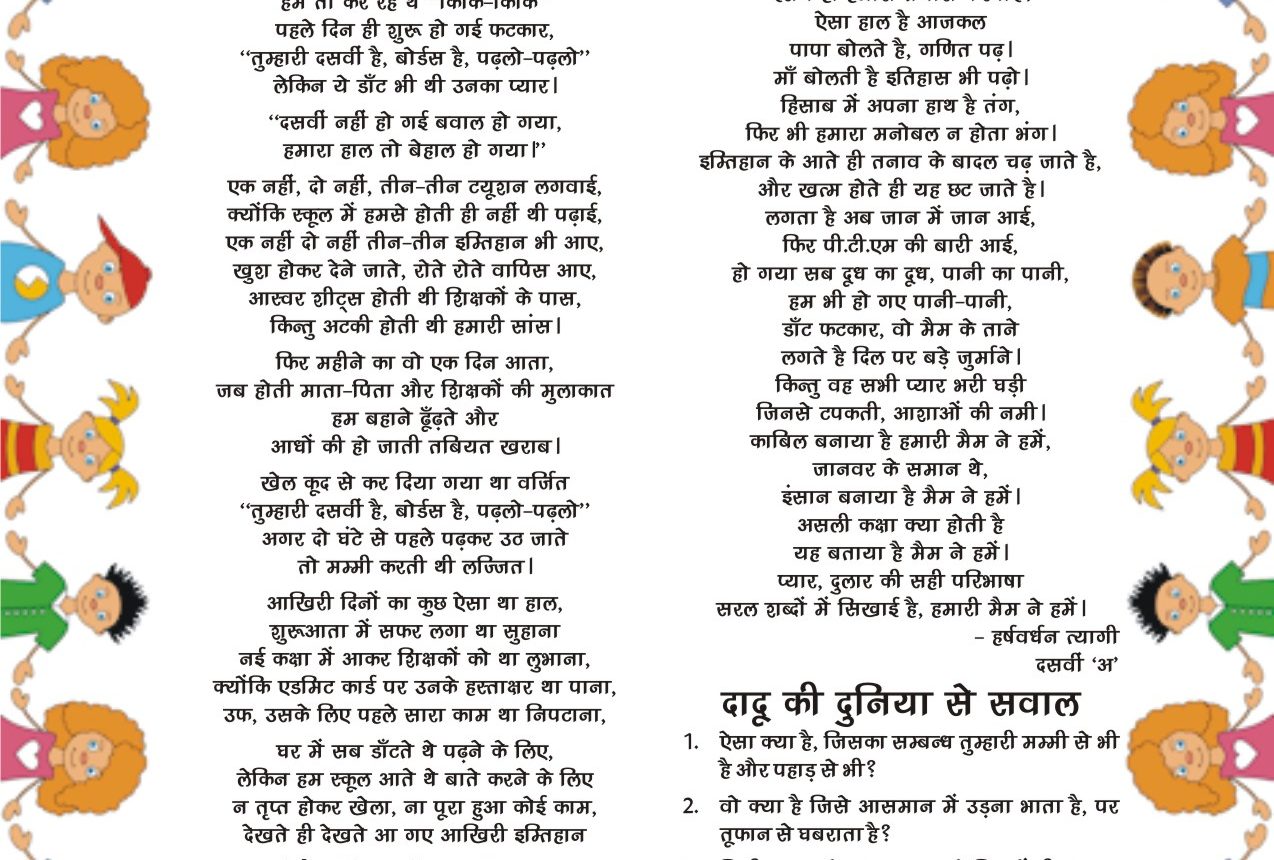 पहले दिन ही शुरू हो गई फटकार,
“तुम्हारी दसवीं है, बोर्डस है, पढ़लो–पढ़लो”
लेकिन ये डाँट भी थी उनका प्यार।
“दसवीं नहीं हो गई बवाल हो गया,
हमारा हाल तो बेहाल हो गया।”
एक नहीं, दो नहीं, तीन–तीन टयूशन लगवाई,
क्योंकि स्कूल में हमसे होती ही नहीं थी पढ़ाई,
एक नहीं दो नहीं तीन–तीन इम्तिहान भी आए,
खुश होकर देने जाते, रोते रोते वापिस आए,
आस्वर शीट्स होती थी शिक्षकों के पास,
किन्तु अटकी होती थी हमारी सांस।
फिर महीने का वो एक दिन आता,
जब होती माता–पिता और शिक्षकों की मुलाकात
हम बहाने ढूँढ़ते और
आधों की हो जाती तबियत खराब।
खेल कूद से कर दिया गया था वर्जित
“तुम्हारी दसवीं है, बोर्डस है, पढ़लो–पढ़लो”
अगर दो घंटे से पहले पढ़कर उठ जाते
तो मम्मी करती थी लज्जित।
आखिरी दिनों का कुछ ऐसा था हाल,
शुरूआता में सफर लगा था सुहाना
नई कक्षा में आकर शिक्षकों को था लुभाना,
क्योंकि एडमिट कार्ड पर उनके हस्ताक्षर था पाना,
उफ, उसके लिए पहले सारा काम था निपटाना,
घर में सब डाँटते थे पढ़ने के लिए,
लेकिन हम स्कूल आते थे बाते करने के लिए
न तृप्त होकर खेला, ना पूरा हुआ कोई काम,
देखते ही देखते आ गए आखिरी इम्तिहान
ऐसा हाल है आजकल
पापा बोलते है, गणित पढ़।
माँ बोलती है इतिहास भी पढ़ो।
हिसाब में अपना हाथ है तंग,
फिर भी हमारा मनोबल न होता भंग।
इम्तिहान के आते ही तनाव के बादल चढ़ जाते है,
और खत्म होते ही यह छट जाते है।
लगता है अब जान में जान आई,
फिर पी.टी.एम की बारी आई,
हो गया सब दूध का दूध, पानी का पानी,
हम भी हो गए पानी–पानी,
डाँट फटकार, वो मैम के ताने
लगते है दिल पर बड़े जुर्माने।
किन्तु वह सभी प्यार भरी घड़ी
जिनसे टपकती, आशाओं की नमी।
काबिल बनाया है हमारी मैम ने हमें,
जानवर के समान थे,
इंसान बनाया है मैम ने हमें।
असली कक्षा क्या होती है
यह बताया है मैम ने हमें।
प्यार, दुलार की सही परिभाषा
सरल शब्दों में सिखाई है, हमारी मैम ने हमें।
– हर्षवर्धन त्यागी
दसवीं ‘अ’
दादू की दुनिया से सवाल
1. ऐसा क्या है, जिसका सम्बन्ध तुम्हारी मम्मी से भी
है और पहाड़ से भी?
2. वो क्या है जिसे आसमान में उड़ना भाता है, पर
तूफान से घबराता है?